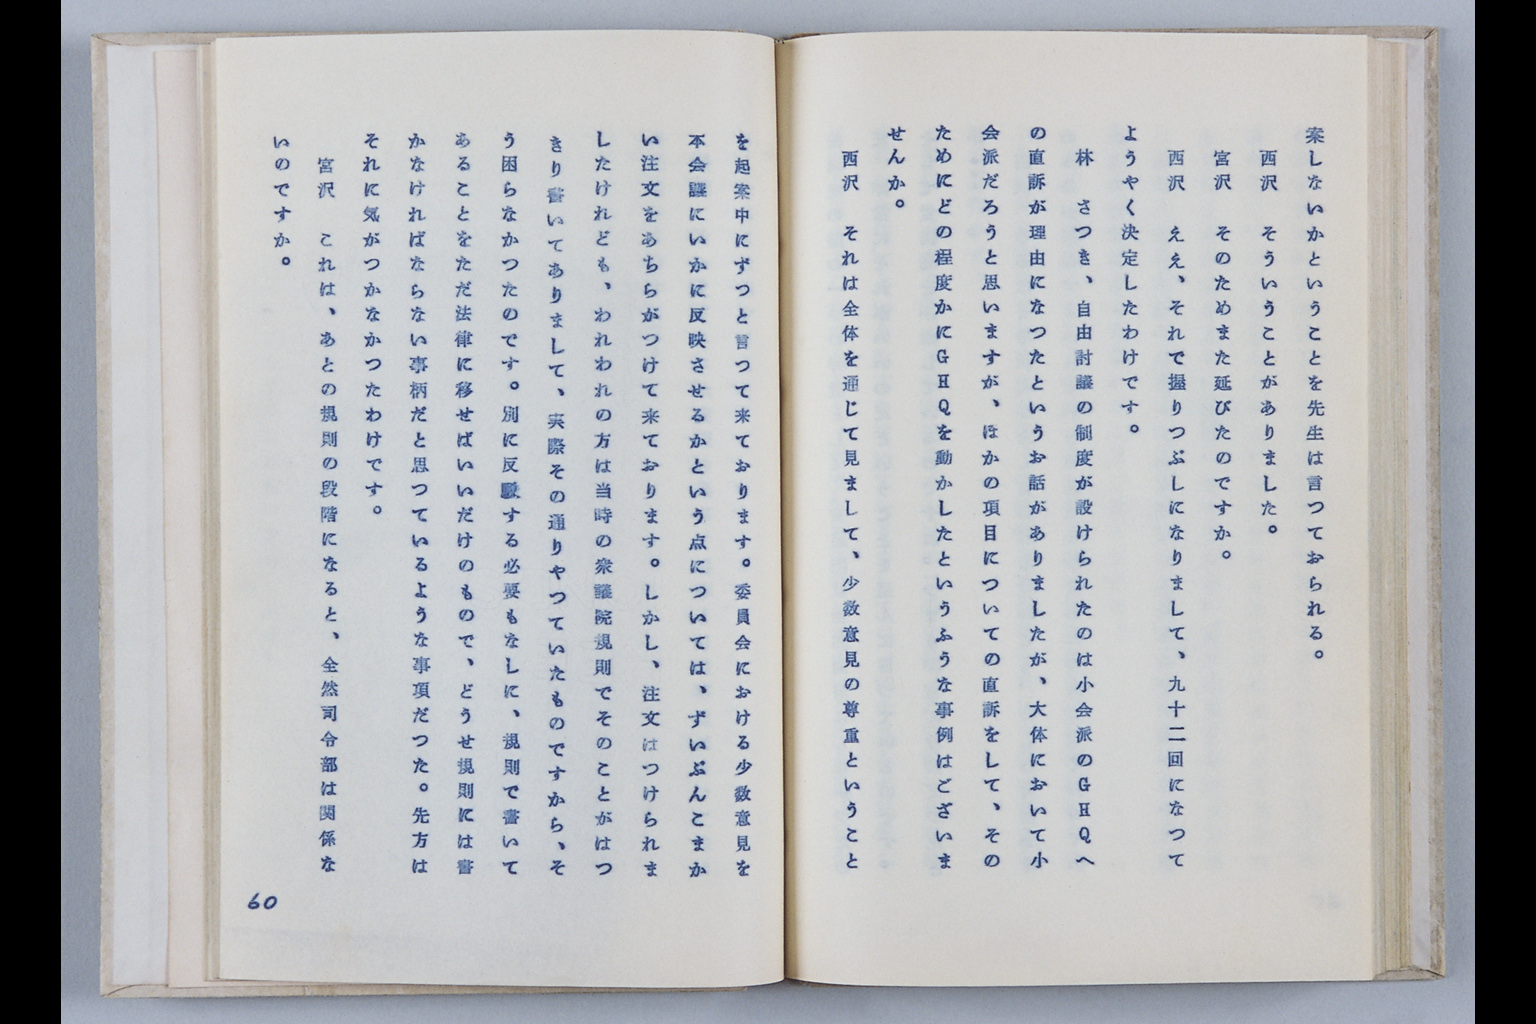 案しないかということを先生は言つておられる。
西沢　そういうことがありました。
宮沢　そのためまた延びたのですか。
西沢　ええ、それで握りつぶしになりまして、九十二回になつて
ようやく決定したわけです。
林　さつき、自由討議の制度が設けられたのは小会派のGHQへ
の直訴が理由になつたというお話がありましたが、大体において小
会派だろうと思いますが、ほかの項目についての直訴をして、その
ためにどの程度かにGHQを動かしたというふうな事例はございま
せんか。
西沢　それは全体を通じて見まして、少数意見の尊重ということ
を起案中にずつと言つて来ております。委員会における少数意見を
本会議にいかに反映させるかという点については、ずいぶんこまか
い注文をあちらがつけて来ております。しかし、注文はつけられま
したけれども、われわれの方は当時の衆議院規則でそのことがはつ
きり書いてありまして、実際その通りやつていたものですから、そ
う困らなかつたのです。別に反駁する必要もなしに、規則で書いて
あることをただ法律に移せばいいだけのもので、どうせ規則には書
かなければならない事柄だと思つているような事項だつた。先方は
それに気がつかなかつたわけです。
宮沢　これは、あとの規則の段階になると、全然司令部は関係な
いのですか。
60